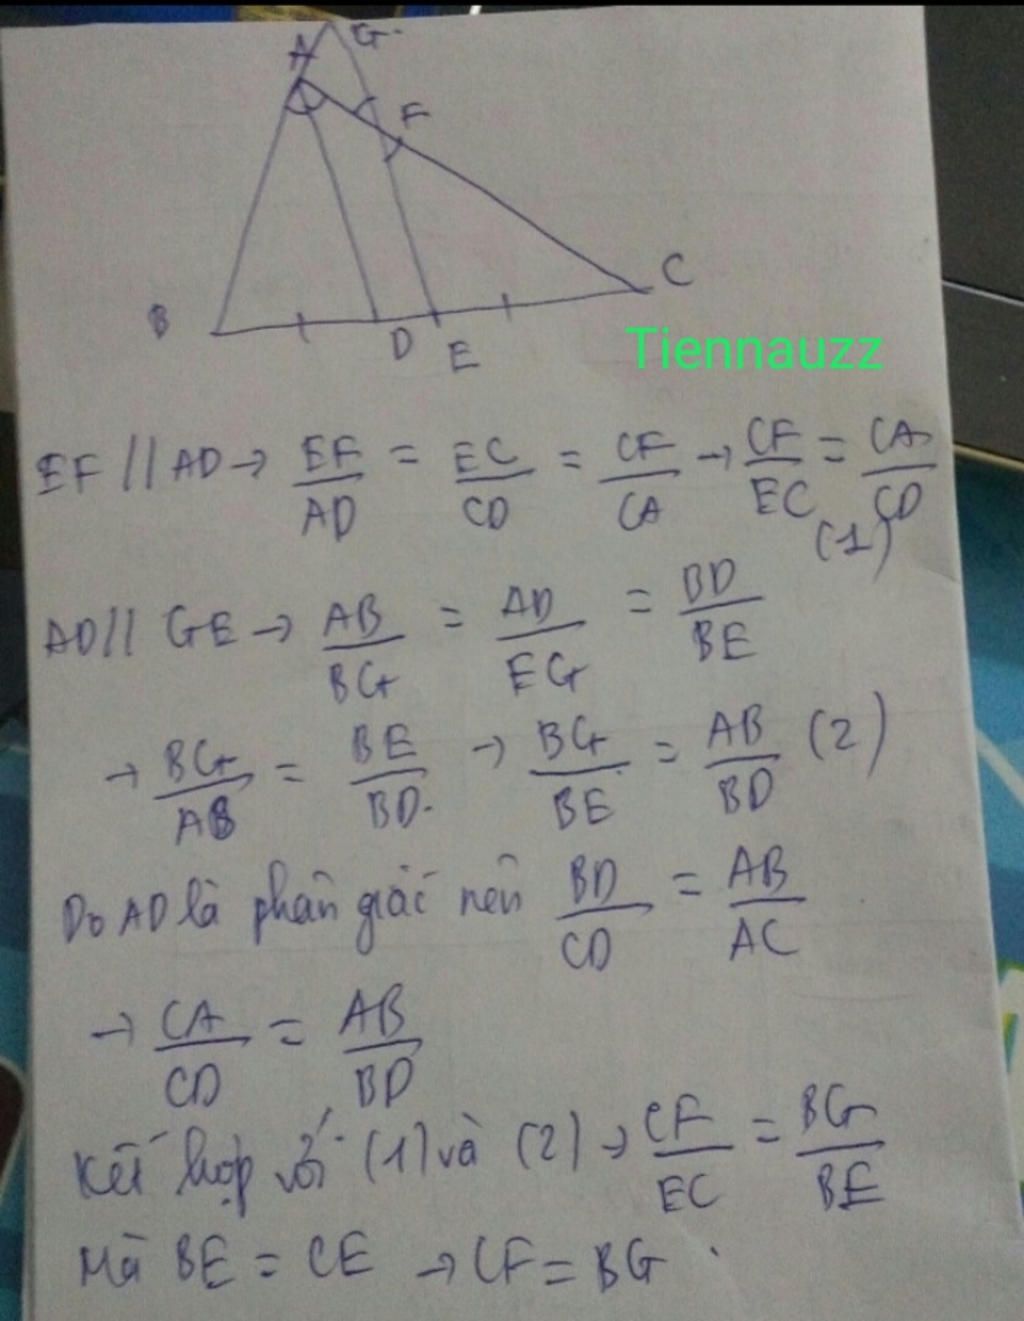 A G
F
B D E C
Tiennauzz
EF // AD → EF/AD = EC/CD = CF/CA → CF/EC = CA/CD (1)
AD // GE → AB/BG = AD/EG = BD/BE
→ BG/AB = BE/BD → BG/BE = AB/BD (2)
Do AD là phân giác nên BD/CD = AB/AC
→ CA/CD = AB/BD
Kết hợp với (1) và (2) → CF/EC = BG/BE
Mà BE = CE → CF = BG.